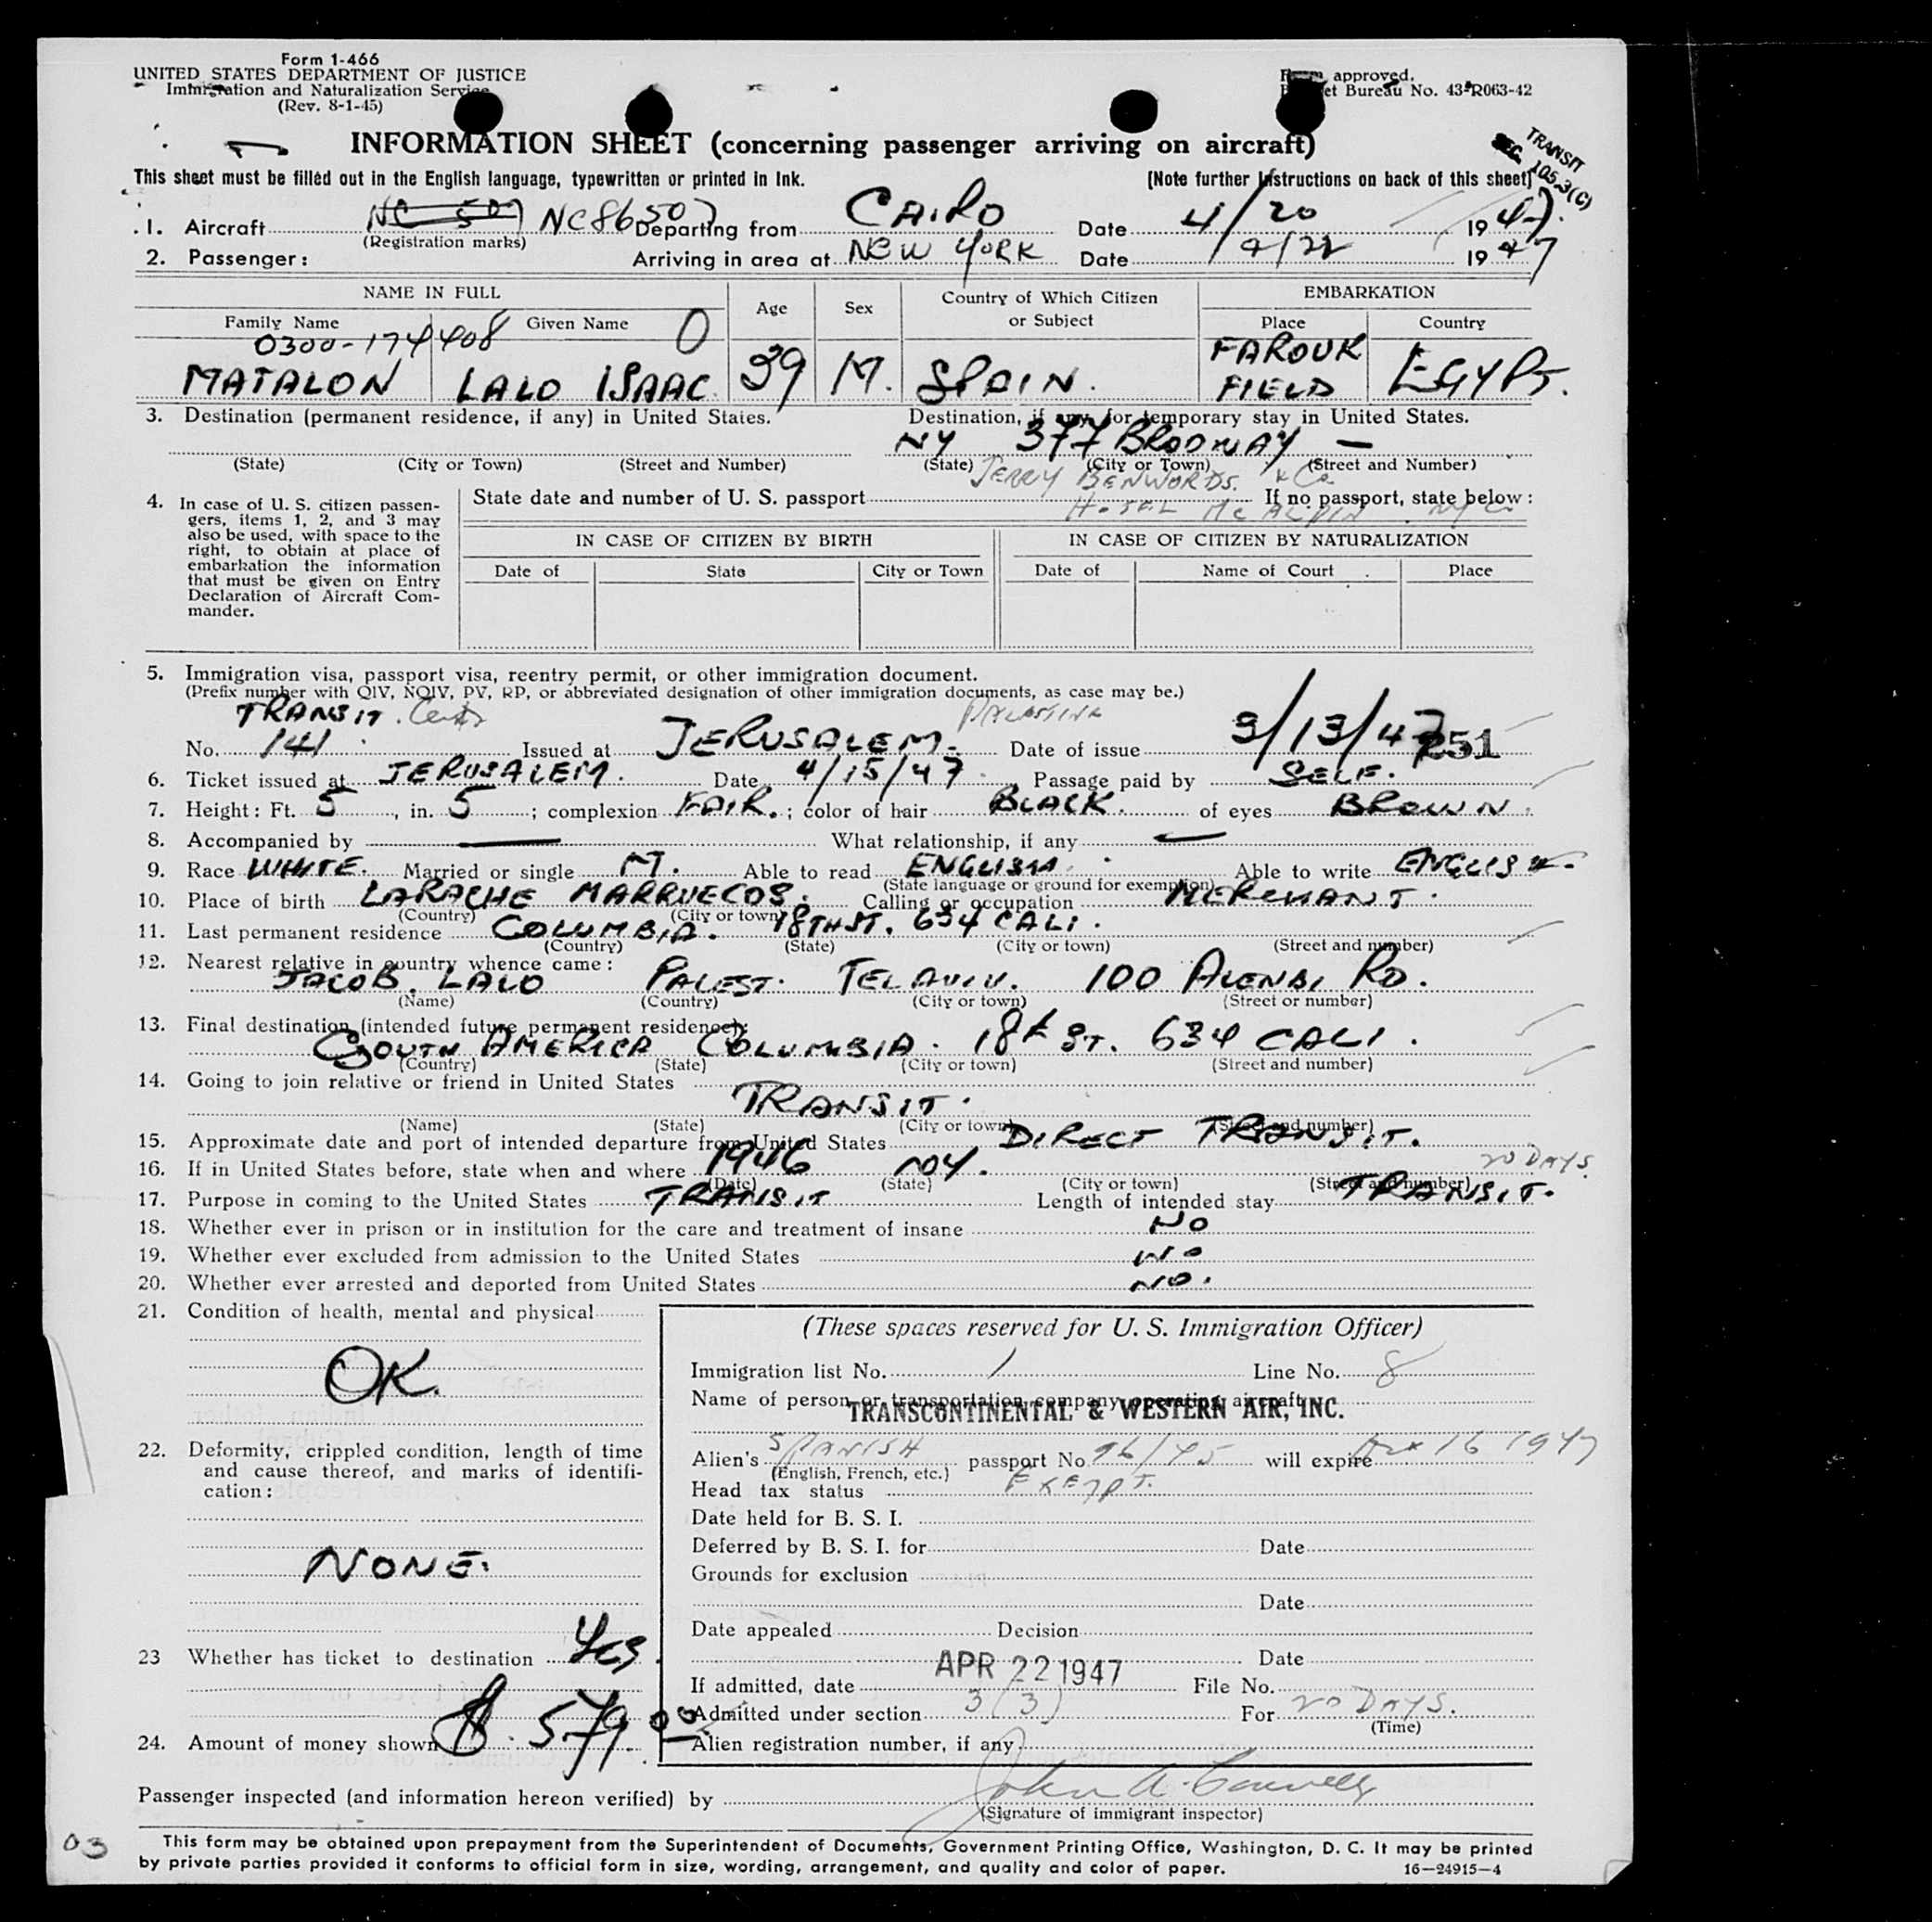 Form 1-466
UNITED STATES DEPARTMENT OF JUSTICE
Immigration and Naturalization Service
(Rev. 8-1-45)
Form approved.
Budget Bureau No. 43-R063-42
INFORMATION SHEET (concerning passenger arriving on aircraft)
TRANSIT
SEC. 105.3(C)
This sheet must be filled out in the English language, typewritten or printed in Ink. (Note further Instructions on back of this sheet)
1. Aircraft NC 507 NC86507 Departing from CAIRO Date 4/20 1947.
(Registration marks)
2. Passenger: Arriving in area at NEW YORK Date 4/22 1947
NAME IN FULL Age Sex Country of Which Citizen or Subject EMBARKATION
Family Name Given Name Place Country
0300-174408 O
MATALON LALO ISAAC 39 M. SPAIN. FAROUK FIELD EGYPT.
3. Destination (permanent residence, if any) in United States. Destination, if any, for temporary stay in United States.
NY 377 BRODWAY —
(State) (City or Town) (Street and Number) (State) (City or Town) (Street and Number)
JERRY BENWORDS. & Co
4. In case of U. S. citizen passengers, items 1, 2, and 3 may also be used, with space to the right, to obtain at place of embarkation the information that must be given on Entry Declaration of Aircraft Commander.
State date and number of U. S. passport If no passport, state below:
HOTEL McALPIN. NYC
IN CASE OF CITIZEN BY BIRTH IN CASE OF CITIZEN BY NATURALIZATION
Date of State City or Town Date of Name of Court Place
5. Immigration visa, passport visa, reentry permit, or other immigration document.
(Prefix number with QIV, NQIV, PV, RP, or abbreviated designation of other immigration documents, as case may be.)
TRANSIT. PALESTINE
No. 141 Issued at JERUSALEM. Date of issue 3/13/47 251
6. Ticket issued at JERUSALEM. Date 4/15/47 Passage paid by SELF.
7. Height: Ft. 5, in. 5; complexion FAIR.; color of hair BLACK. of eyes BROWN.
8. Accompanied by — What relationship, if any —
9. Race WHITE. Married or single M. Able to read ENGLISH. Able to write ENGLISH.
(State language or ground for exemption)
10. Place of birth LARACHE MARRUECOS. Calling or occupation MERCHANT.
(Country) (City or town)
11. Last permanent residence COLUMBIA. 18TH ST. 634 CALI.
(Country) (State) (City or town) (Street and number)
12. Nearest relative in country whence came:
JACOB. LALO PALEST. TELAVIV. 100 ALENBI RD.
(Name) (Country) (City or town) (Street or number)
13. Final destination (intended future permanent residence):
SOUTH AMERICA COLUMBIA. 18t ST. 634 CALI.
(Country) (State) (City or town) (Street and number)
14. Going to join relative or friend in United States
TRANSIT.
(Name) (State) (City or town) (Street and number)
15. Approximate date and port of intended departure from United States DIRECT TRANSIT.
16. If in United States before, state when and where 1946 NY. 20 DAYS.
(Date) (State) (City or town) (Street and number)
17. Purpose in coming to the United States TRANSIT Length of intended stay TRANSIT.
18. Whether ever in prison or in institution for the care and treatment of insane NO
19. Whether ever excluded from admission to the United States NO
20. Whether ever arrested and deported from United States NO.
21. Condition of health, mental and physical
OK.
22. Deformity, crippled condition, length of time and cause thereof, and marks of identification:
NONE.
23 Whether has ticket to destination YES.
24. Amount of money shown $. 579.00
(These spaces reserved for U. S. Immigration Officer)
Immigration list No. 1 Line No. 8
Name of person or transportation company operating aircraft
TRANSCONTINENTAL & WESTERN AIR, INC.
Alien's SPANISH passport No 96/45 will expire 16 1947
(English, French, etc.)
Head tax status EXEMPT.
Date held for B. S. I.
Deferred by B. S. I. for Date
Grounds for exclusion
Date
Date appealed Decision
Date
If admitted, date APR 22 1947 File No.
Admitted under section 3(3) For 20 DAYS.
(Time)
Alien registration number, if any
Passenger inspected (and information hereon verified) by John A.
(Signature of immigrant inspector)
03
This form may be obtained upon prepayment from the Superintendent of Documents, Government Printing Office, Washington, D. C. It may be printed
by private parties provided it conforms to official form in size, wording, arrangement, and quality and color of paper. 16—24915-4